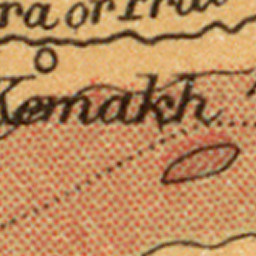 ra or Frat
Kemakh